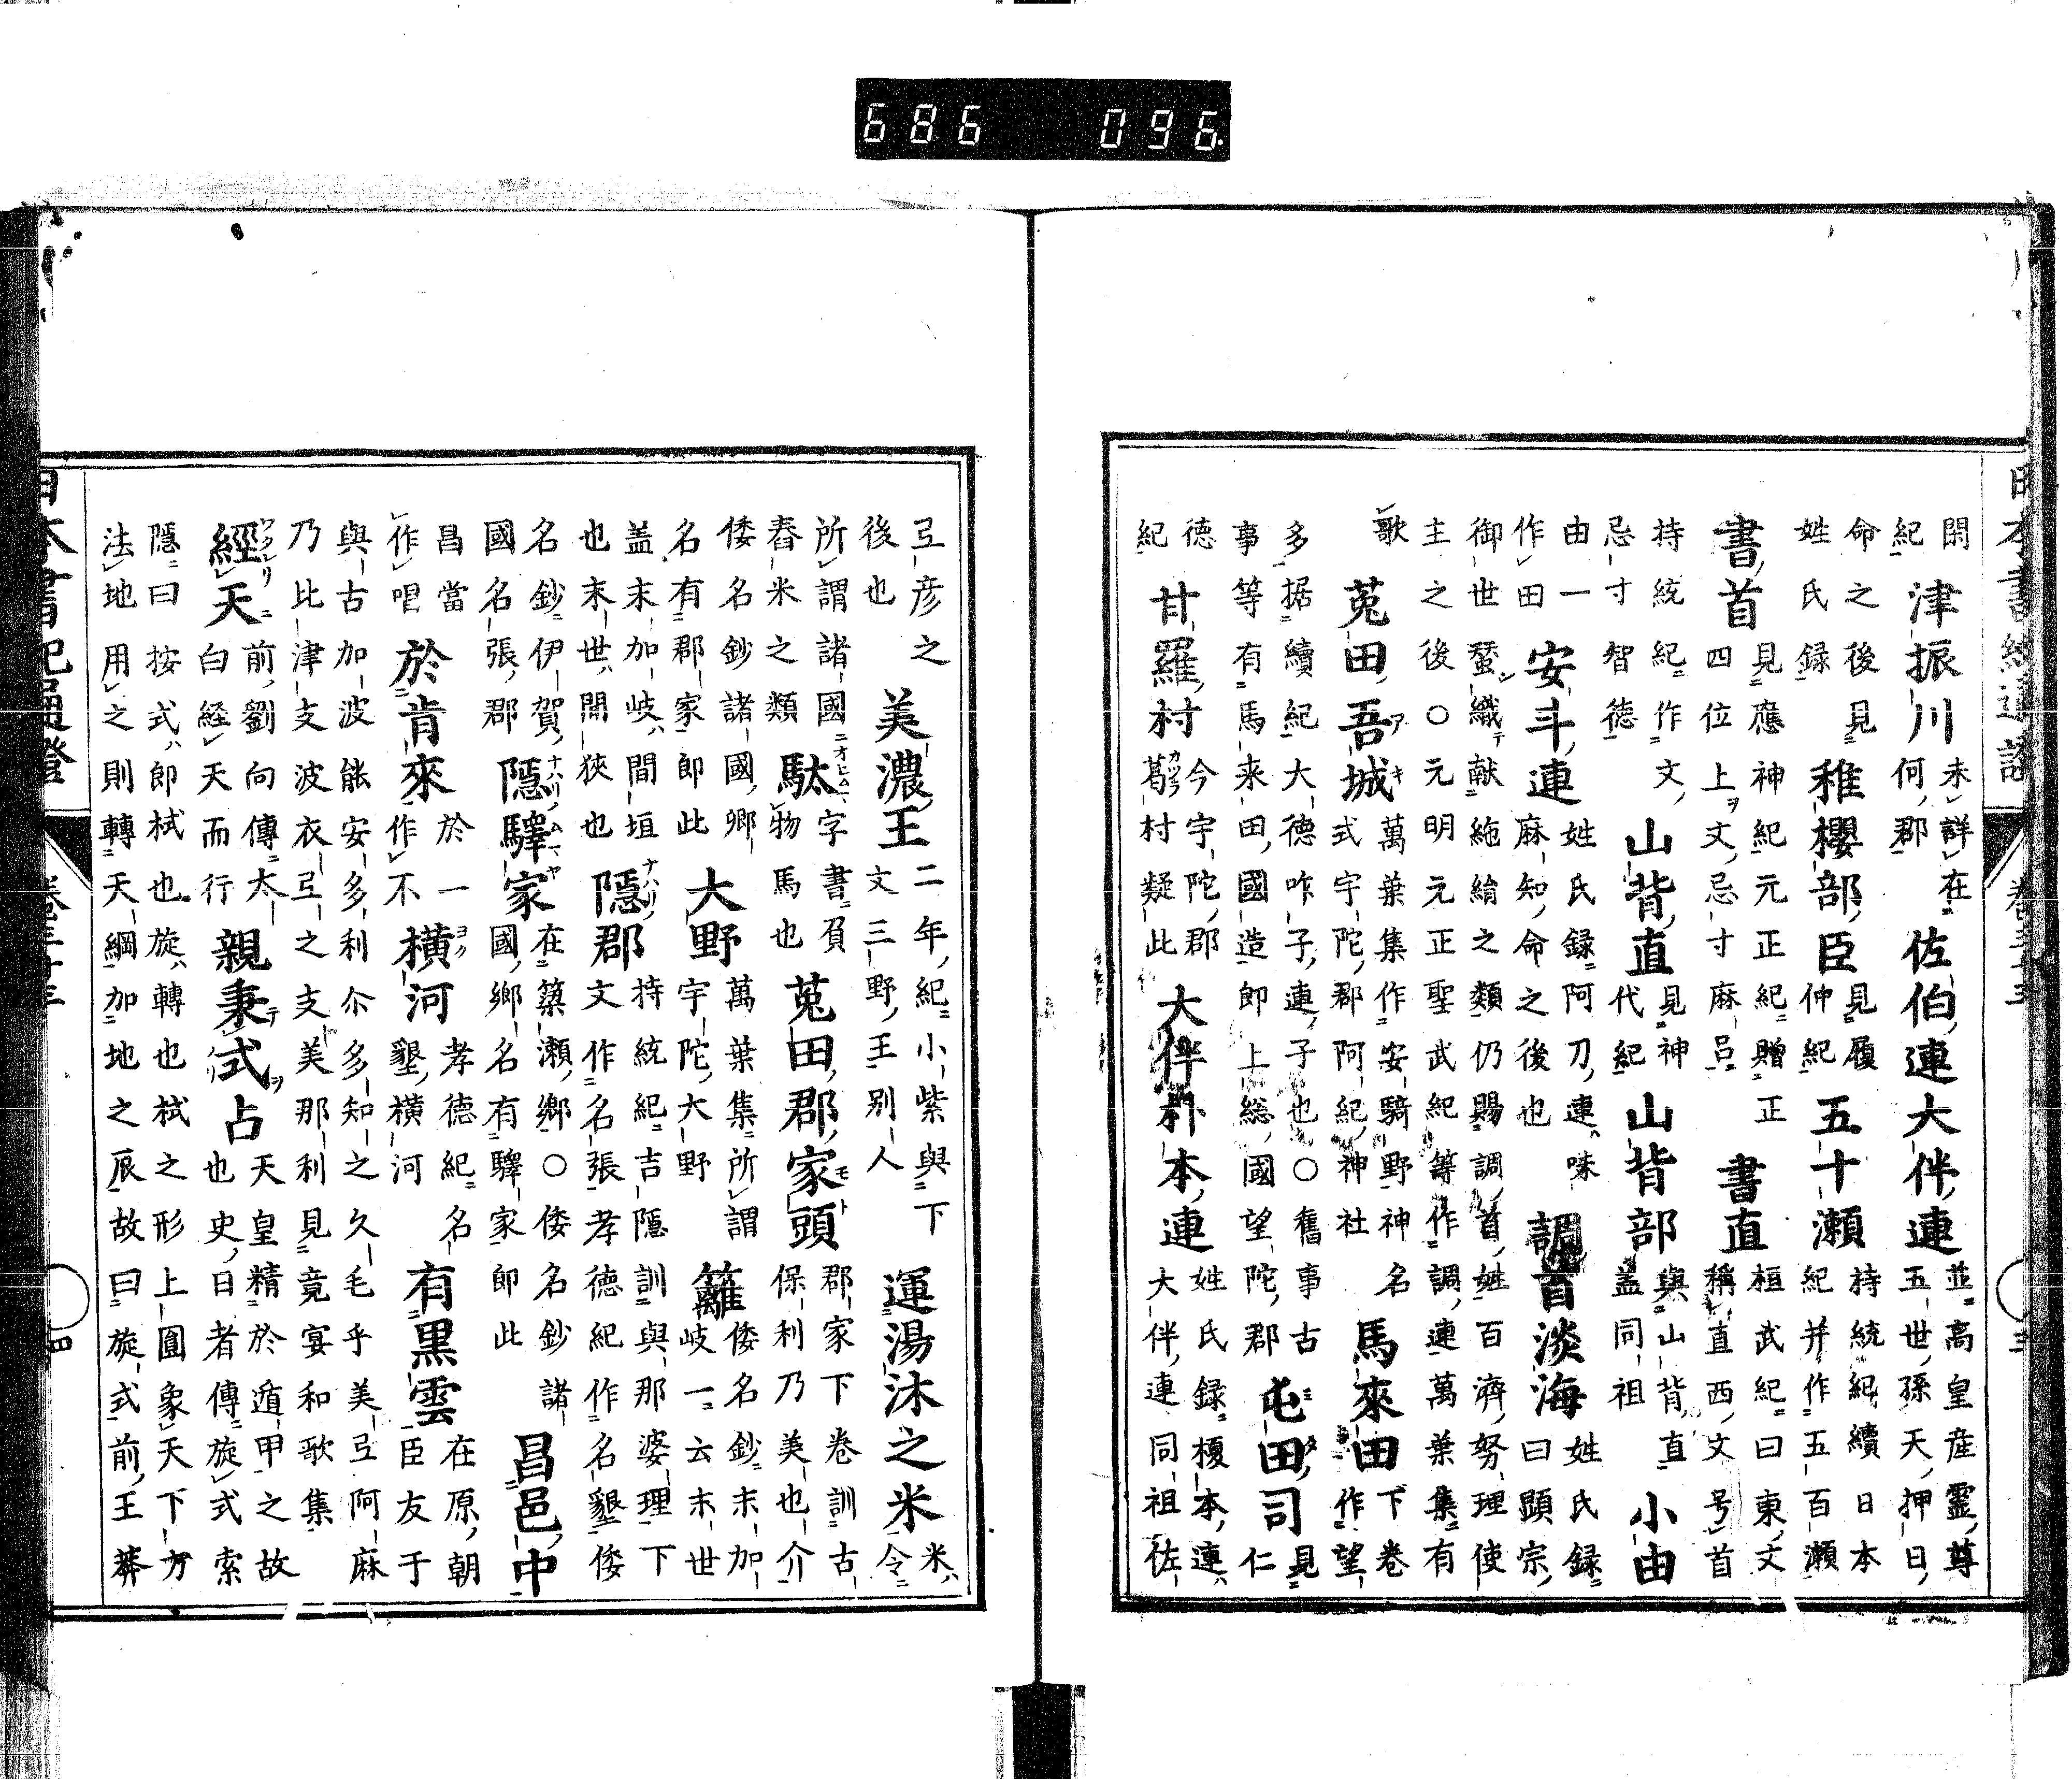 閑
紀
津振川
未詳在
何郡
佐伯連大伴連
並高皇産霊尊
五世孫天押日
命之後見
姓氏録
稚櫻部臣
見履
仲紀
五十瀬
持統紀續日本
紀并作五百瀬
書首
見應神紀元正紀贈正
四位上文忌寸麻呂
書直
桓武紀曰東文
稱直西文号首
持統紀作文
忌寸智德
山背直
見神
代紀
山背部
與山背直
蓋同祖
小由
由一
作田
安斗連
姓氏録阿刀連味
麻知命之後也
調首淡海
姓氏録
曰顕宗
御世蠶織献絁絹之類仍賜調首姓百濟努理使
主之後○元明元正聖武紀等作調連萬葉集有
歌
菟田吾城
萬葉集作安騎野神名
式宇陀郡阿紀神社
馬來田
下卷
作望
多据續紀大德咋子連子也○舊事古
事等有馬来田國造即上総國望陀郡
屯田司
見
仁
德
紀
甘羅村
今宇陀郡
葛村疑此
大伴朴本連
姓氏録榎本連
大伴連同祖佐
弖彦之
後也
美濃王
二年紀小紫與下
文三野王別人
運湯沐之米
米
令
所謂諸國
舂米之類
駄
字書負
物馬也
菟田郡家頭
郡家下卷訓古
保利乃美也介
倭名鈔諸國郷
名有郡家即此
大野
萬葉集所謂
宇陀大野
籬
倭名鈔末加
岐一云末世
盖末加岐間垣
也末世間狭也
隱郡
持統紀吉隱訓與那婆理下
文作名張孝德紀作名墾倭
名鈔伊賀
國名張郡
隱驛家
在築瀬郷○倭名鈔諸
國郷名有驛家即此
昌邑中
昌當
作唱
於肯來
於一
作不
横河
孝德紀名
墾横河
有黒雲
在原朝
臣友于
與古加波能安多利尒多知之久毛乎美弖阿麻
乃比津支波衣弖之支美那利見竟宴和歌集
經天
前劉向傳太
白経天而行
親秉式占
天皇精於遁甲之故
也史日者傳旋式索
隱曰按式即栻也旋轉也栻之形上圓象天下方
法地用之則轉天綱加地之辰故曰旋式前王莽